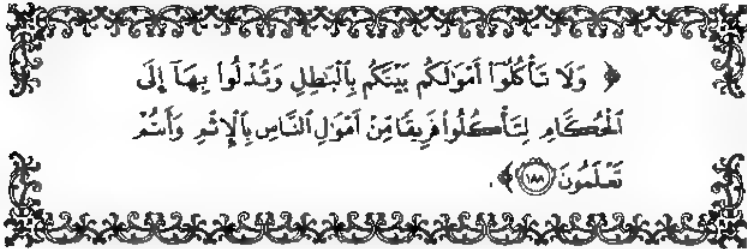 ﴿ وَلَا تَأْكُلُوٓا۟ أَمْوَٰلَكُم بَيْنَكُم بِٱلْبَٰطِلِ وَتُدْلُوا۟ بِهَآ إِلَى
ٱلْحُكَّامِ لِتَأْكُلُوا۟ فَرِيقًا مِّنْ أَمْوَٰلِ ٱلنَّاسِ بِٱلْإِثْمِ وَأَنتُمْ
تَعْلَمُونَ ١٨٨ ﴾ .